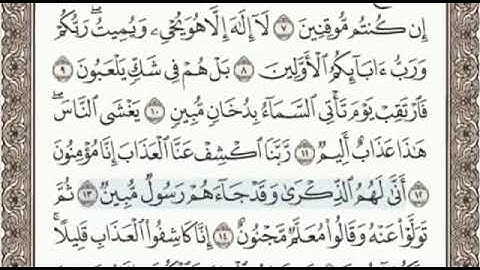 إِن كُنتُم مُّوقِنِينَ ٧ لَآ إِلَٰهَ إِلَّا هُوَ يُحْىِۦ وَيُمِيتُ ۖ رَبُّكُمْ
وَرَبُّ ءَابَآئِكُمُ ٱلْأَوَّلِينَ ٨ بَلْ هُمْ فِى شَكٍّ يَلْعَبُونَ ٩
فَٱرْتَقِبْ يَوْمَ تَأْتِى ٱلسَّمَآءُ بِدُخَانٍ مُّبِينٍ ١٠ يَغْشَى ٱلنَّاسَ ۖ
هَٰذَا عَذَابٌ أَلِيمٌ ١١ رَّبَّنَا ٱكْشِفْ عَنَّا ٱلْعَذَابَ إِنَّا مُؤْمِنُونَ
١٢ أَنَّىٰ لَهُمُ ٱلذِّكْرَىٰ وَقَدْ جَآءَهُمْ رَسُولٌ مُّبِينٌ ١٣ ثُمَّ
تَوَلَّوْا۟ عَنْهُ وَقَالُوا۟ مُعَلَّمٌ مَّجْنُونٌ ١٤ إِنَّا كَاشِفُوا۟ ٱلْعَذَابِ قَلِيلًا ۚ